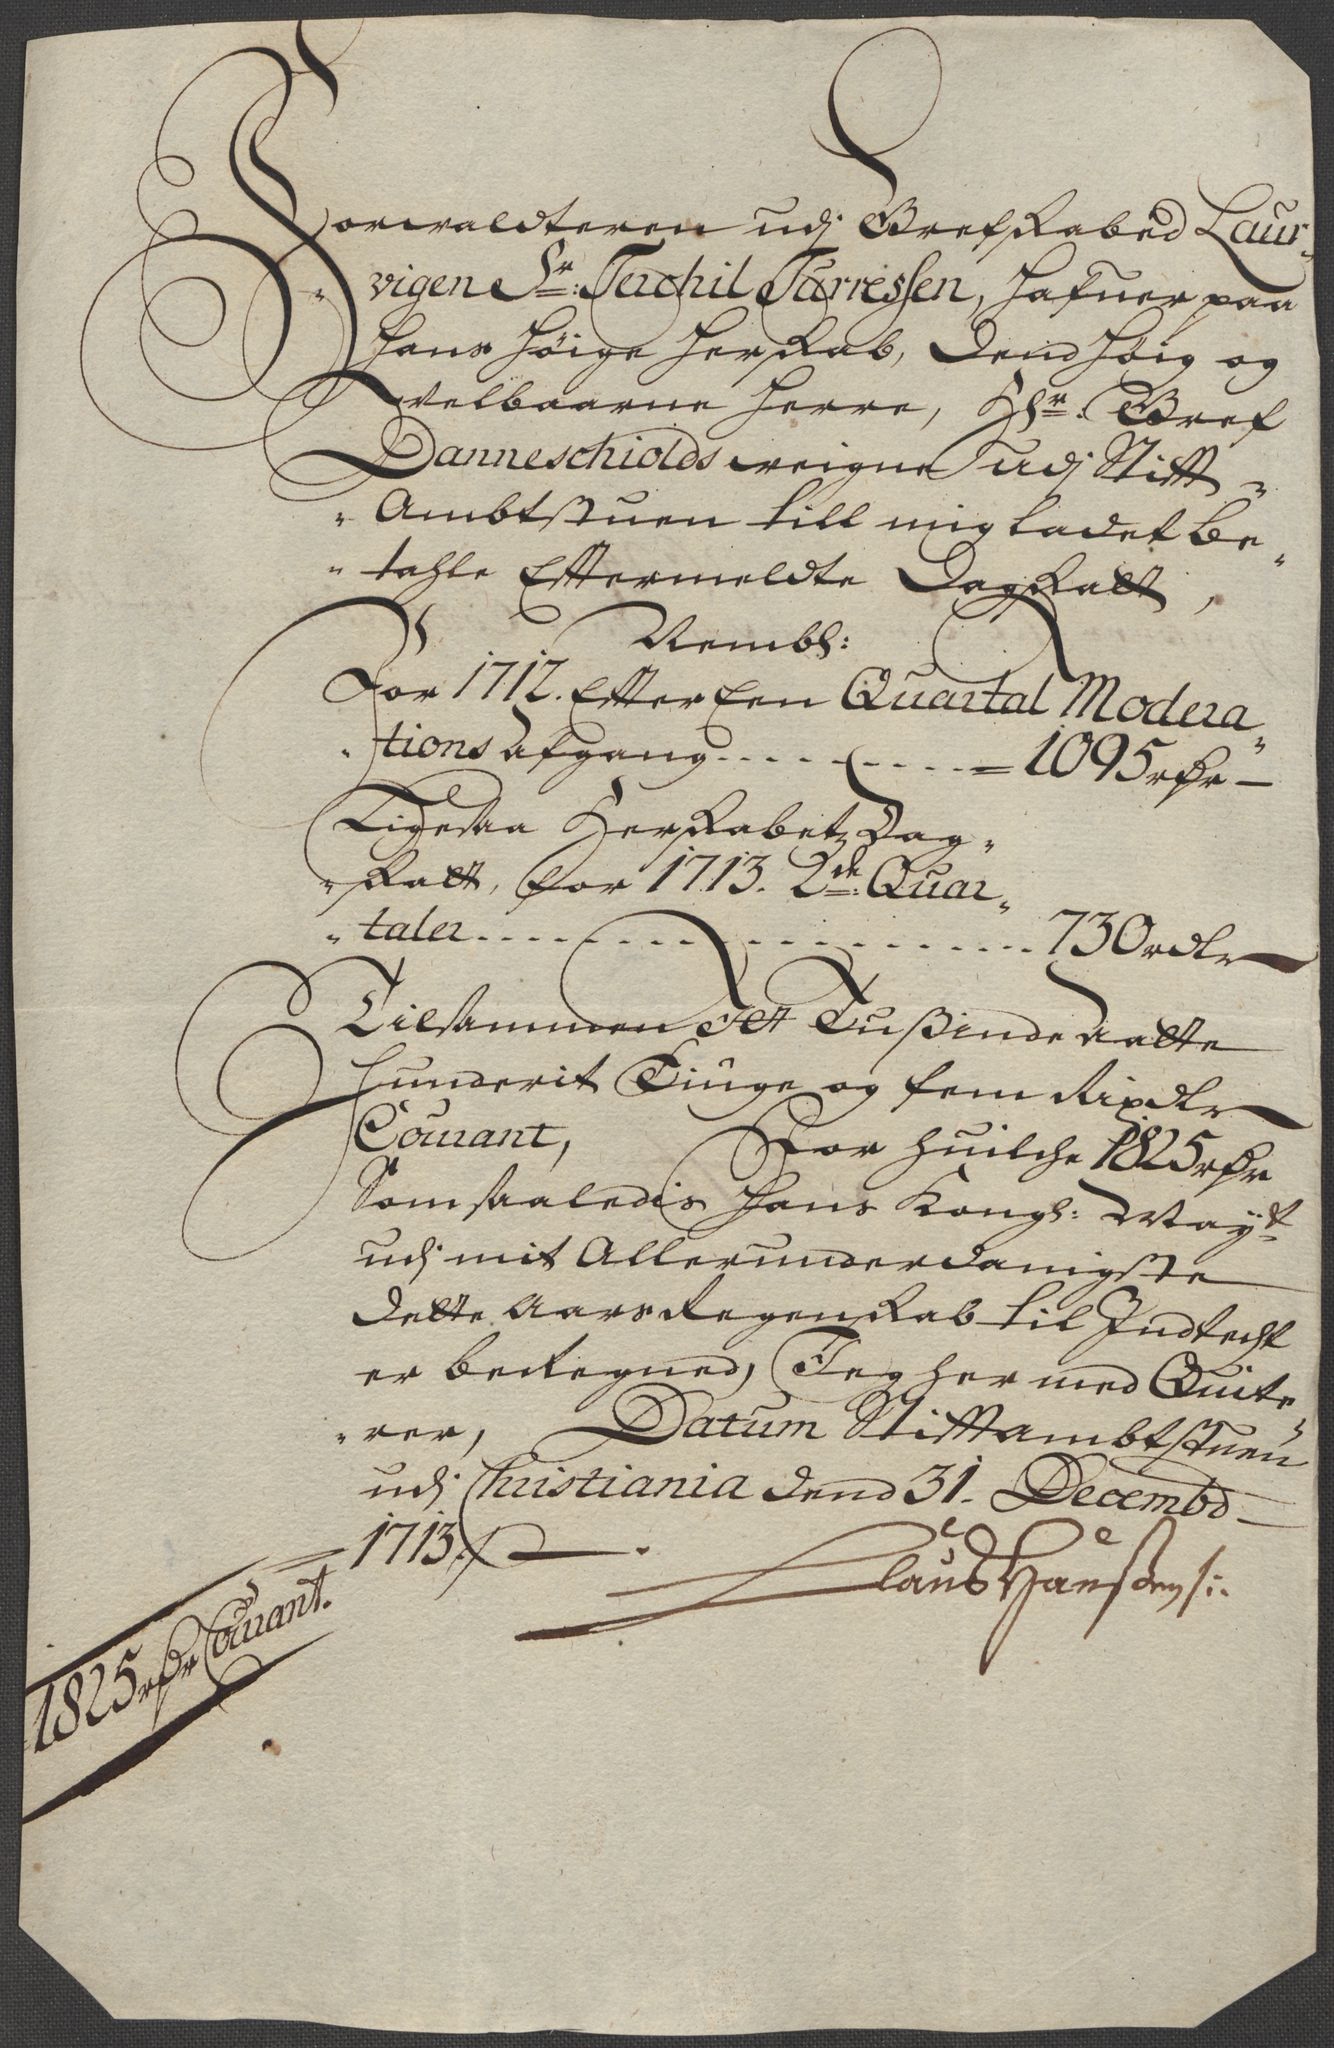 Forvaldteren udj Grefskabed Laur¬
¬vigen Sr: Terchil Turressen, hafuer paa
hans höige herskab, dend höig og
velbaarne herre, Hr: Gref
Danneschiolds veigne udj Stift¬
¬Ambtstuen till mig ladet be¬
¬tahle Efftermeldte Dagskatt,
Nembl:
For 1712. Efter Een Quartal Modera¬
¬tions afgang . . . . . . . . . = 1095 rdr —
Ligesaa Herskabetz Dag¬
¬skatt, for 1713. 2de: Quar¬
¬taler . . . . . . . . . . . . . . . . 730 rdlr
Tilsammen Itt Tußinde aatte
hunderit Tiuge og fem Rixdlr
Courant, For huilche 1825 rdr
Som saaledis hans Kongl: Mayt
udj mit Allerunderdanigste
dette aars Regenskab til Indtecht
er beregned, Jeg her med Quite¬
¬rer, Datum Stiftambtstuen
udj Christiania dend 31. Decembd
1713.
Claus Hansen
1825 rdr Courant.